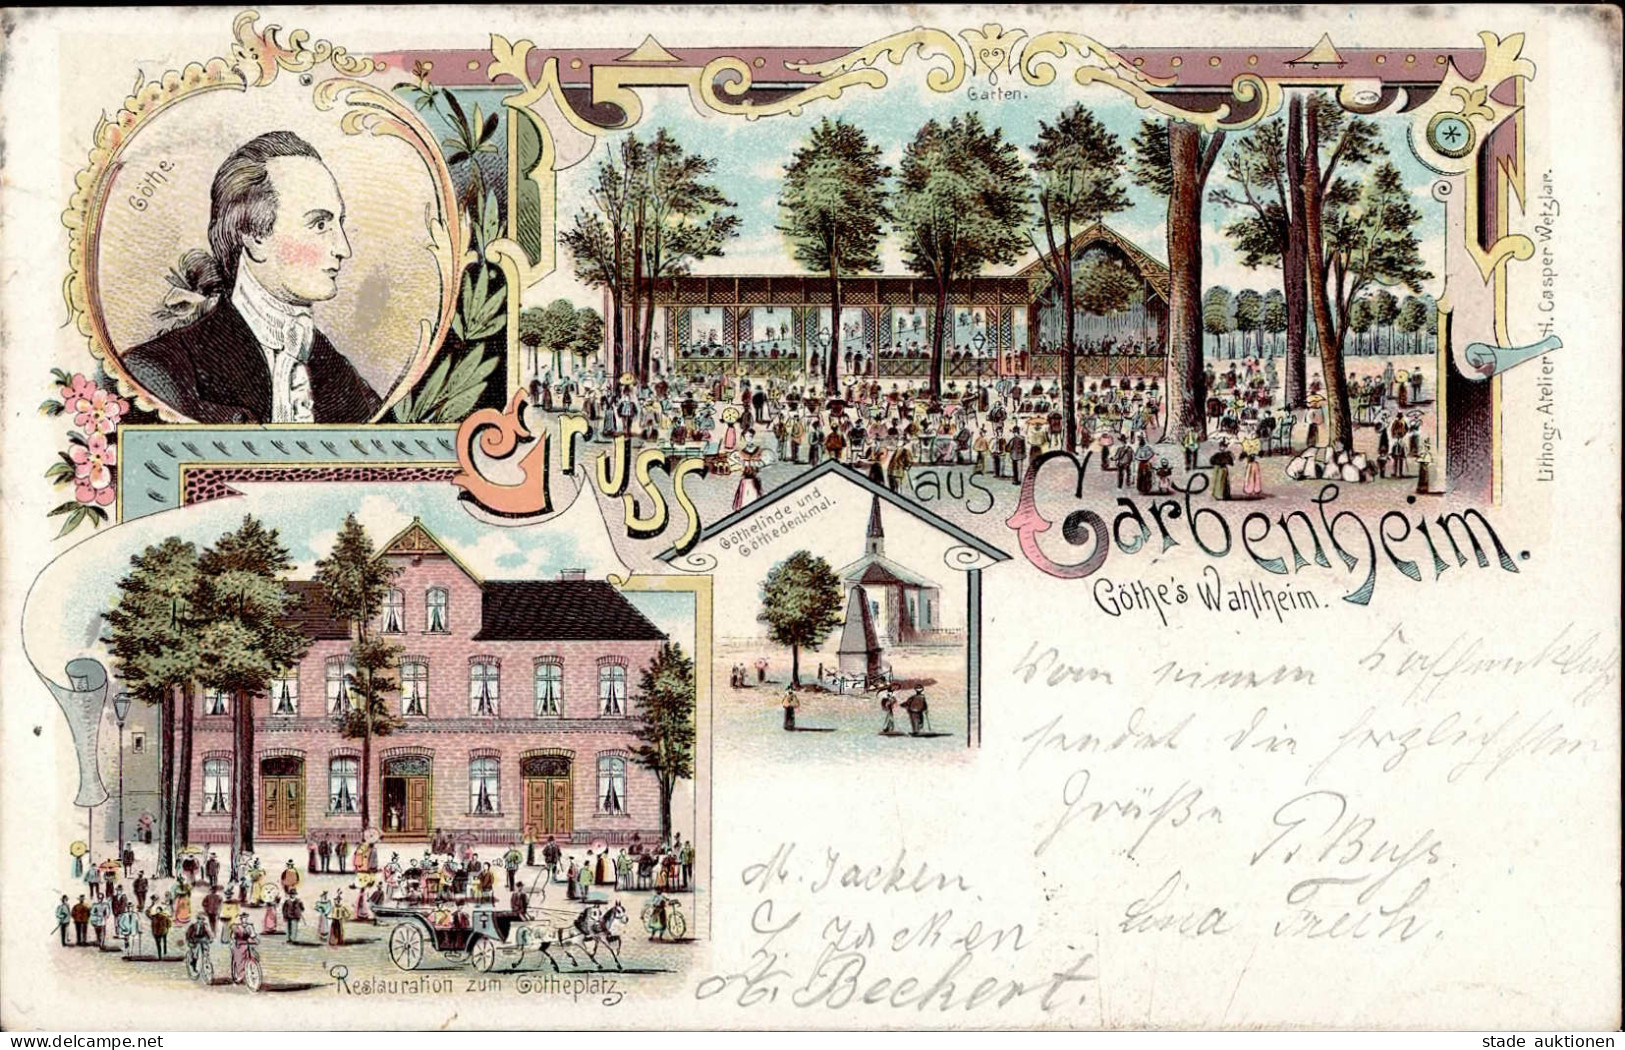 Göthe.
Garten.
Gruss aus Garbenheim.
Göthe's Wahlheim.
Göthelinde und
Göthedenkmal.
Restauration zum Götheplatz.
Lithogr. Atelier H. Casper Wetzlar.
Von einem Kaffeeklatsch
sendet die herzlichsten
Grüße
M. Jacken
Lina Frech.
Jacken
Beckert.
delcampe.net
stade auktionen